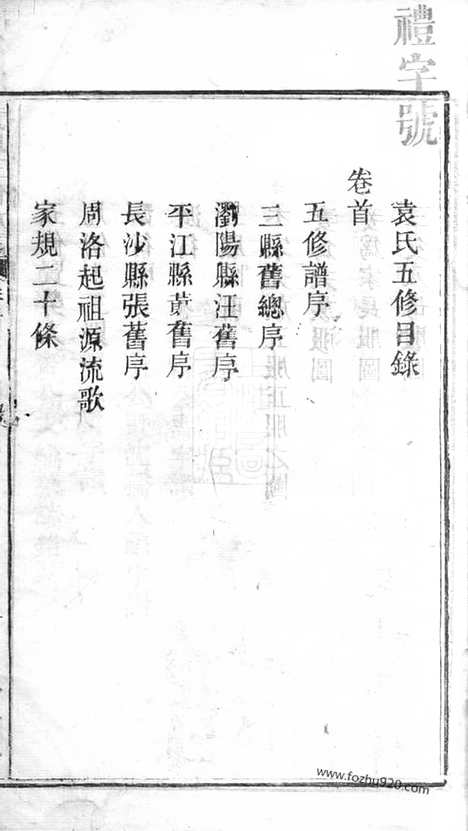 禮字號
袁氏五修目錄
卷首
五修譜序
三縣舊總序
瀏陽縣汪舊序
平江縣黃舊序
長沙縣張舊序
周洛起祖源流歌
家規二十條
www.fozhu920.com